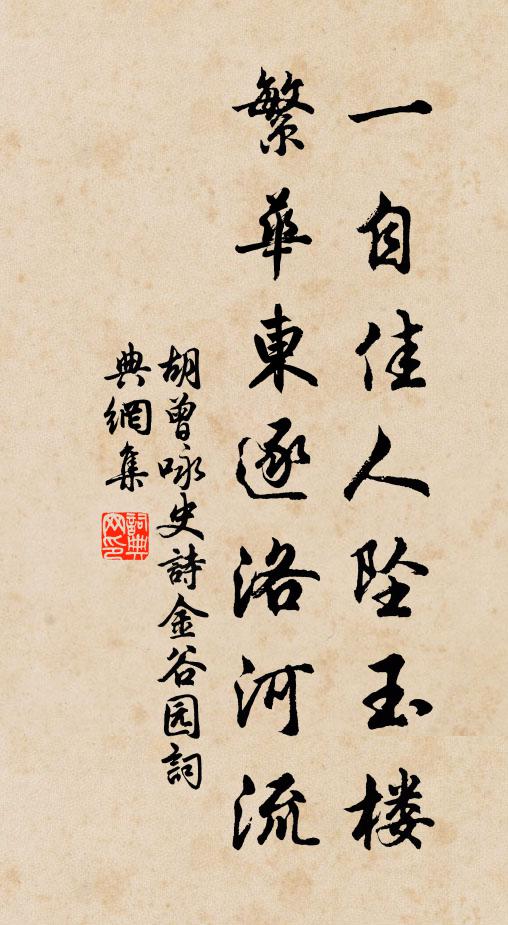 一自佳人坠玉楼
繁華東逐洛河流
胡曾咏史詩金谷园詞
典網集
詞典網印